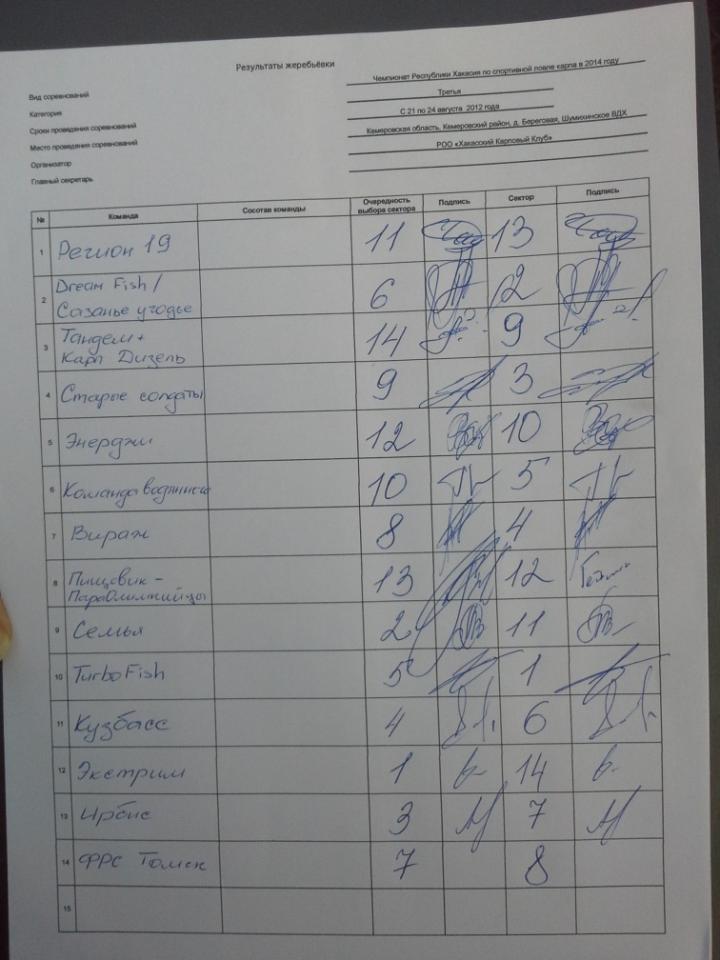 Результаты жеребьёвки
Вид соревнований
Чемпионат Республики Хакасия по спортивной ловле карпа в 2014 году
Категория
Третья
Сроки проведения соревнований
С 21 по 24 августа 2012 года
Место проведения соревнований
Кемеровская область, Кемеровский район, д. Береговая, Шумихинское ВДХ
Организатор
РОО «Хакасский Карповый Клуб»
Главный секретарь
№ Команда Сосотав команды Очередность выбора сектора Подпись Сектор Подпись
1 Регион 19 11 13
2 Dream Fish / 6 2
Сазанье угодье
3 Тандем + 14 9
Карп Дизель
4 Старые солдаты 9 3
5 Энерджи 12 10
6 Команда водяного 10 5
7 Вираж 8 4
8 Пищевик - 13 12
Параолимпийцы
9 Семья 2 11
10 TurboFish 5 1
11 Кузбасс 4 6
12 Экстрим 1 14
13 Ирбис 3 7
14 ФРС Томск 7 8
15